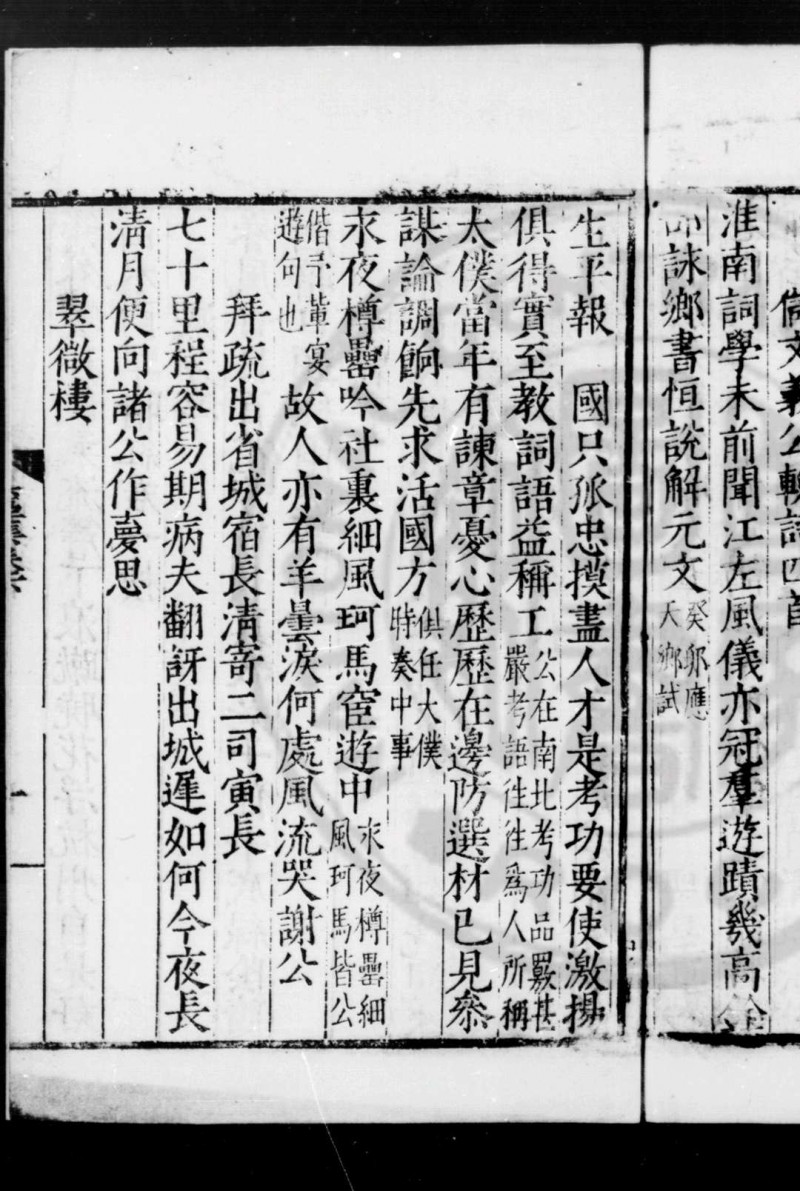 儲文義公輓詩四首
淮南詞學未前聞江左風儀亦冠羣遊蹟幾高
誅鄉書恒說解元文癸卯應天鄉試
生平報　國只孤忠摸盡人才是考功要使激揚
俱得實至教詞語益稱工公在南北考功品覈甚嚴考語往往爲人所稱
太僕當年有諫章憂心歷歷在邊防選材已見叅
謀論調餉先求活國方俱任太僕時奏中事
永夜樽罍吟社裏細風珂馬宦遊中永夜樽罍細風珂馬皆公
偕予輩宴遊句也　故人亦有羊曇淚何處風流哭謝公
拜疏出省城宿長清寄二司寅長
七十里程容易期病夫翻訝出城遲如何今夜長
清月便向諸公作夢思
翠微樓